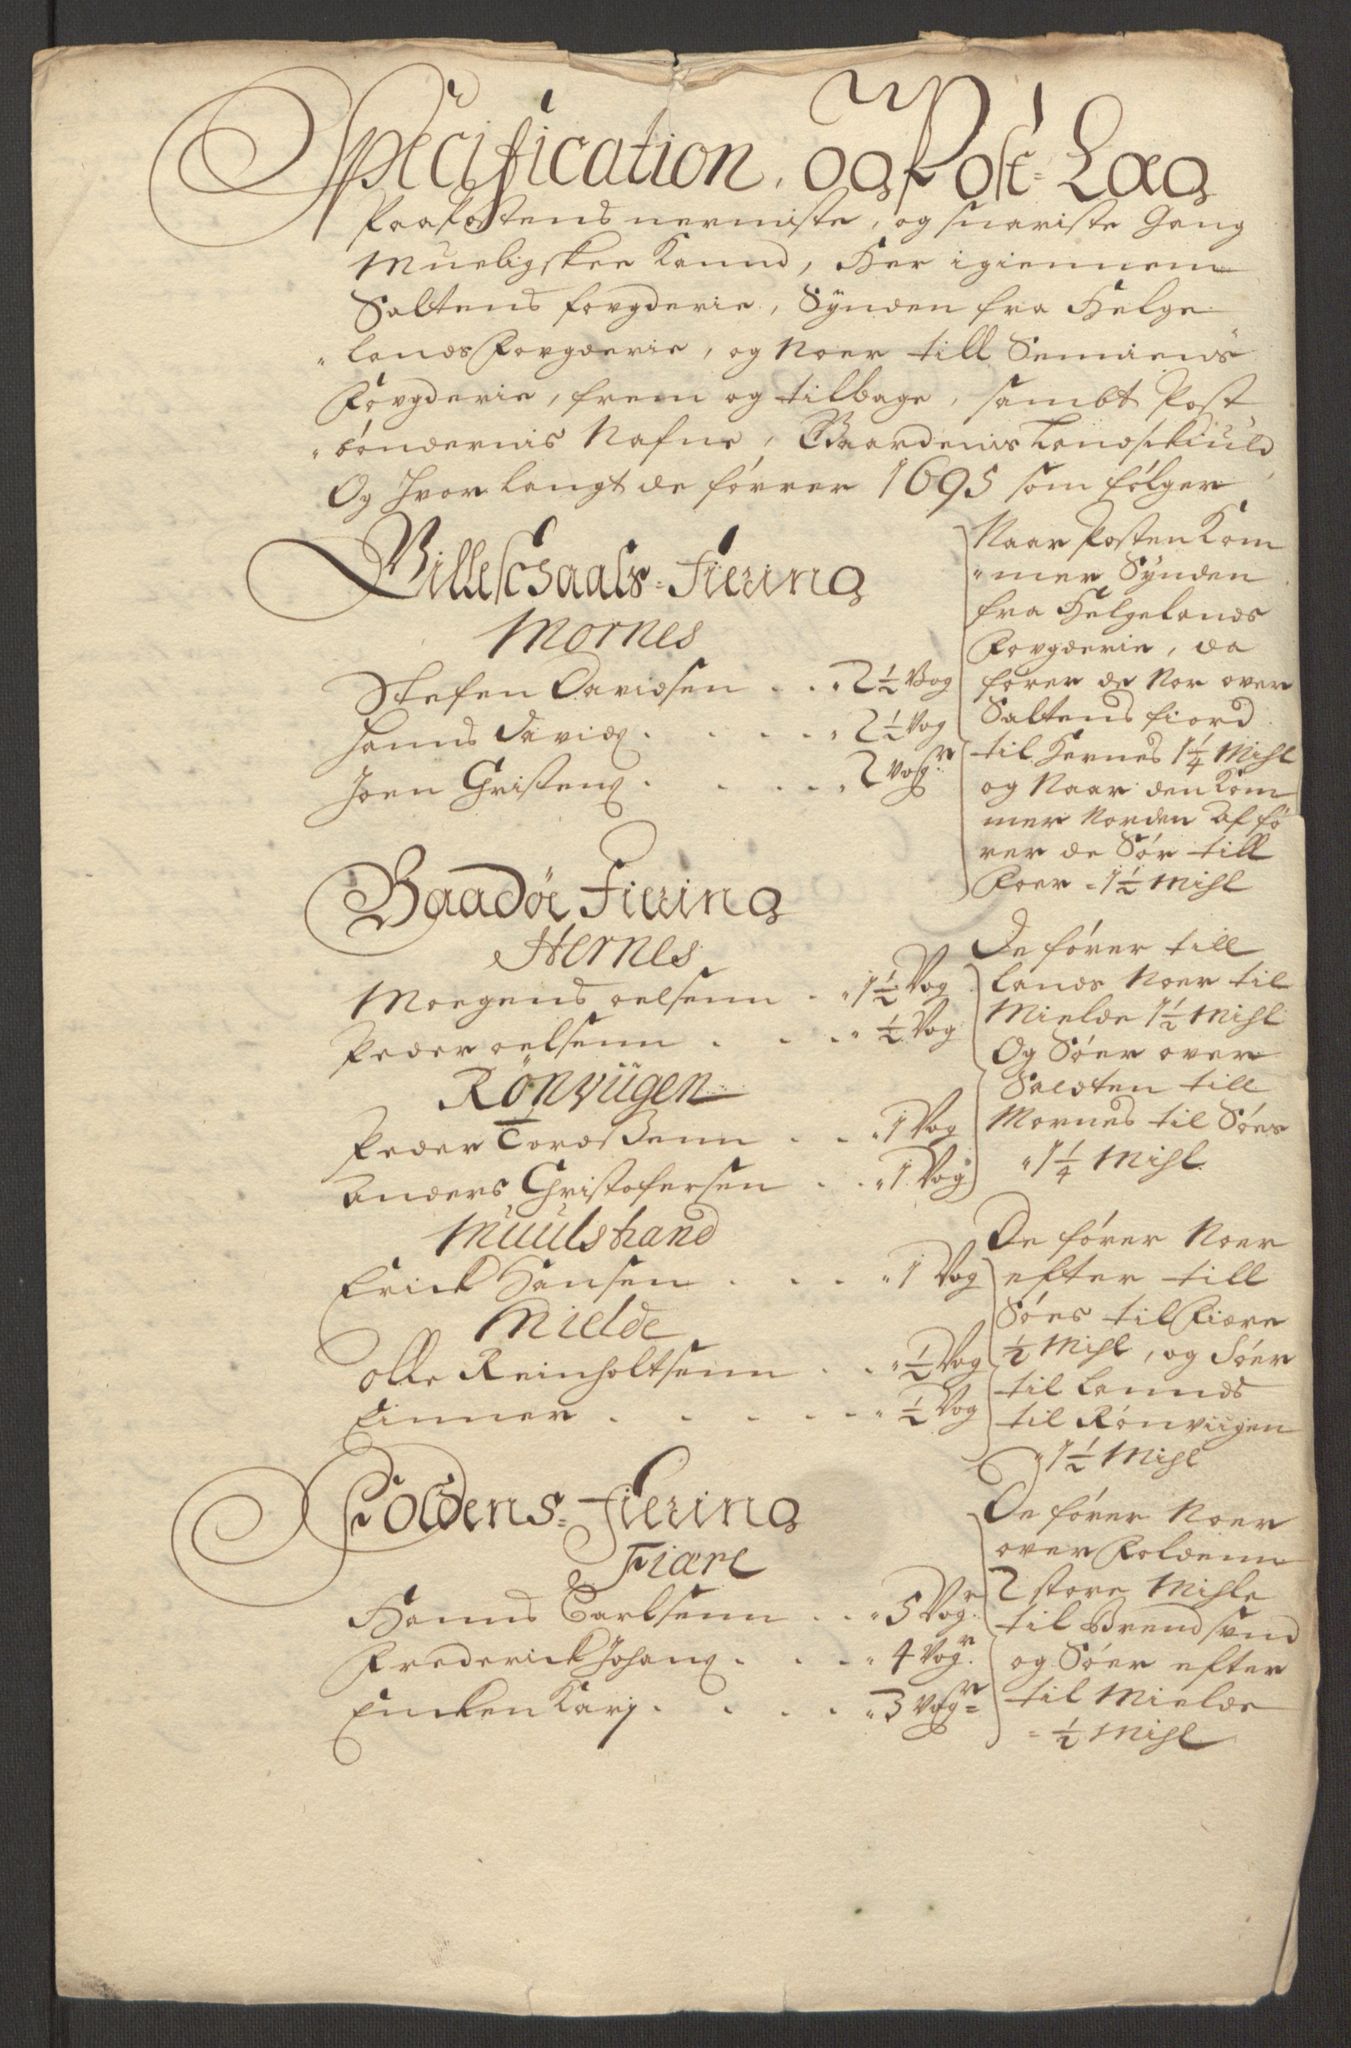 Specification, og Post-Lag
Paa Postens nermiste, og snariste Gang
Mueligskee Kannd, Her igiennem
Saltens fovgderie, Synden fra Helge
"lands Fovgderie, og Noer till Senniens
Fovgderie, frem og tilbage, sambt Post
"bøndernis Nafne, Gaardenis Landskiuld,
Og hvor langt de førrer 1695 som følger
Gilleschaals-Fiering
Mornes
Stefen Davidsen . . "2½ Vog
Hanns David . . . . "2½ Vog
Joen Christen . . . . "2 Vogr
Naar Posten Kom
"mer Synden
fra Helgelands
Fovgderie, da
fører de Nor over
Saltens fiord
til Hernes 1¼ Mihl
og Naar den Kom
mer Norden Af fø
rer de Sør till
Foer "1½ Mihl
Baadøe Fiering
Hernes
Moegens oelsenn . "1½ Vog
Peder oelsenn . . . "½ Vog
Rönviigen
Peder Tordsenn . . "1 Vog
Anders Christofersen . . "1 Vog
De fører till
lands Noer til
Mielde 1½ Mihl
Og Søer over
Saldten till
Mornes til Søes
"1¼ Mihl.
Muulstrand
Erick Hansen . . . . "1 Vog
Mielde
Olle Reinholtsenn . . "½ Vog
Einner . . . . . "½ Vog
De fører Noer
efter till
Søes til Fiære
½ Mihl, og Søer
til Lannds
til Rönviigen
"1½ Mihl
Foldens-Fiering
Fiære
Hanns Carlsenn . . "5 Vogr
Frederick Johan . . . "4 Vogr.
Encken Karj . . . . "3 Vogr
De fører Noer
over Foldenn
2 store Mihle
til Brendsund
og Søer efter
til Mielde
"½ Mihl